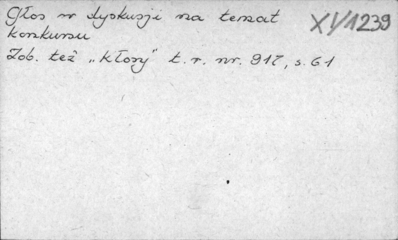 Głos w dyskusji na temat XV/1239
konkursu
Zob. też „Kłosy" t.r. nr. 917, s. 61